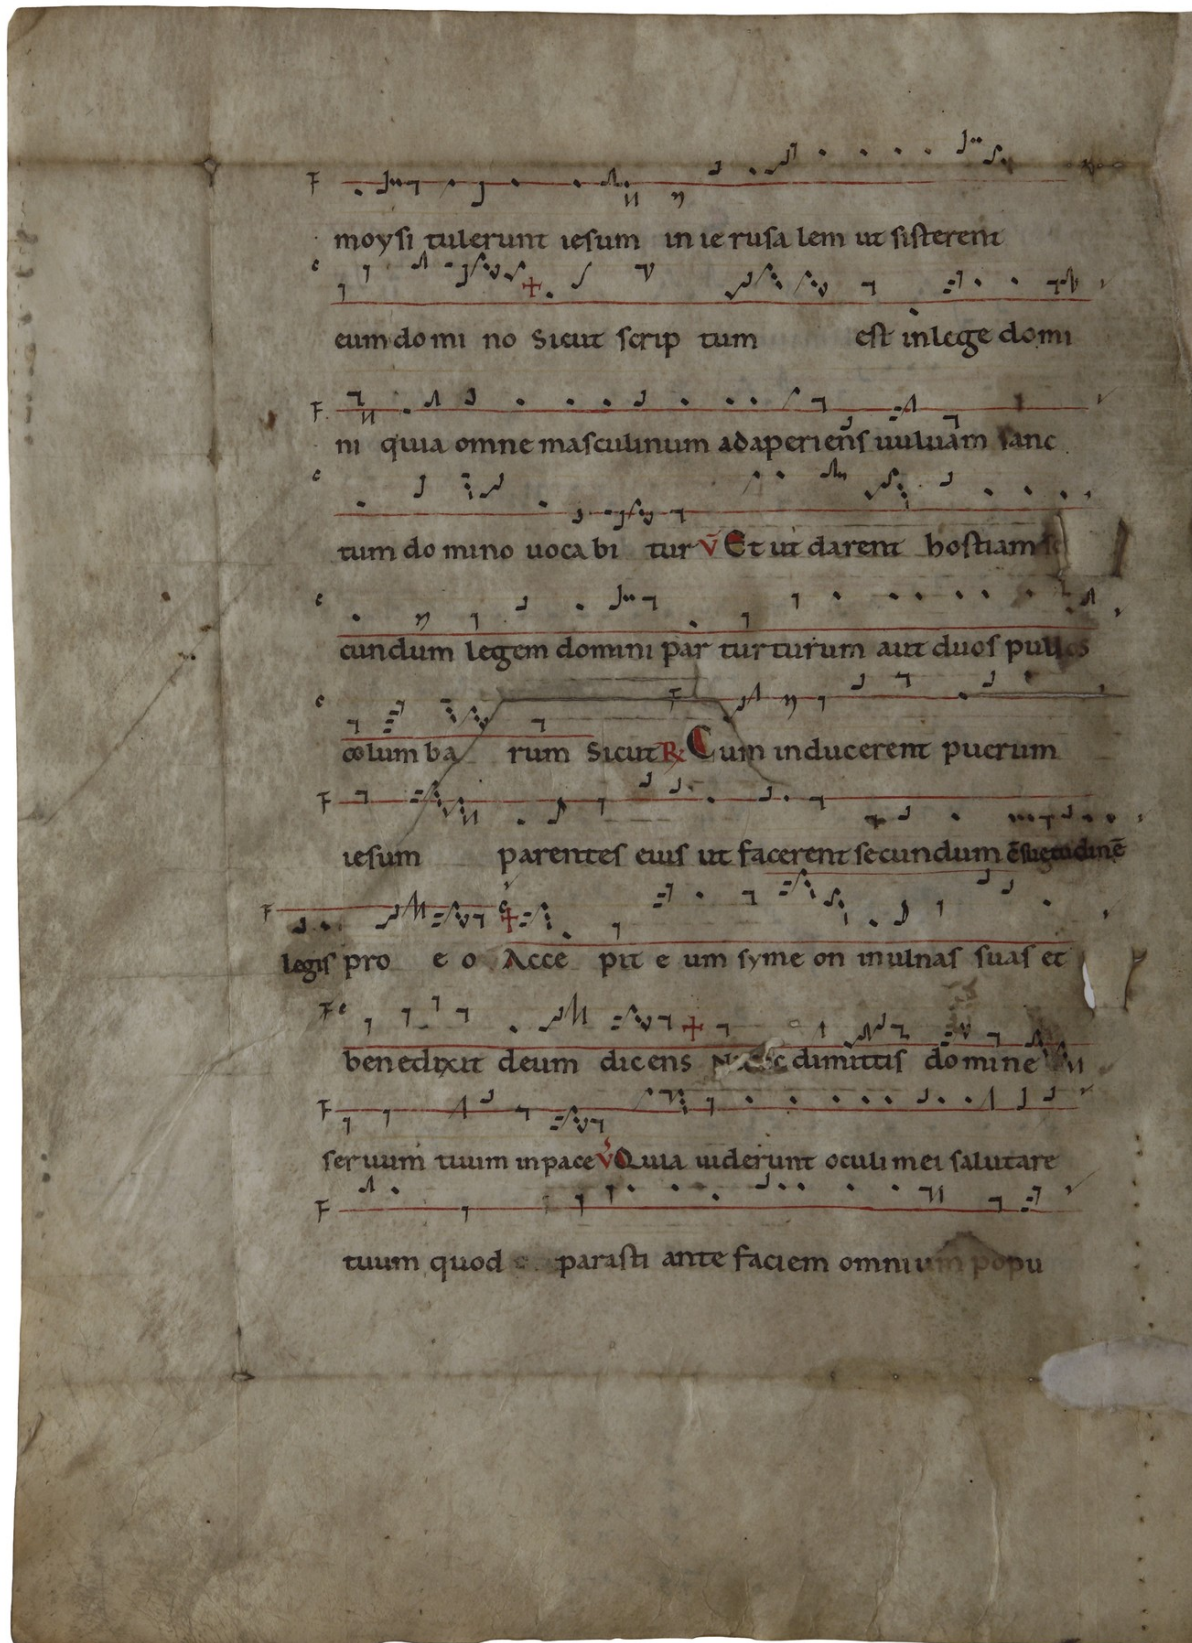 moysi tulerunt iesum in ie rusa lem ut sisterent
eum do mi no Sicut scrip tum est in lege domi
ni quia omne masculinum adaperiens uuluam sanc
tum do mino uoca bi tur V̄ Et ut darent hostiam se
cundum legem domini par turturum aut duos pullos
columba rum Sicut R Cum inducerent puerum
iesum parentes eius ut facerent secundum c̄suetudinē
legis pro e o Acce pit e um syme on in ulnas suas et
benedixit deum dicens dimittis domine
seruum tuum in pace V Quia uiderunt oculi mei salutare
tuum quod parasti ante faciem omnium popu